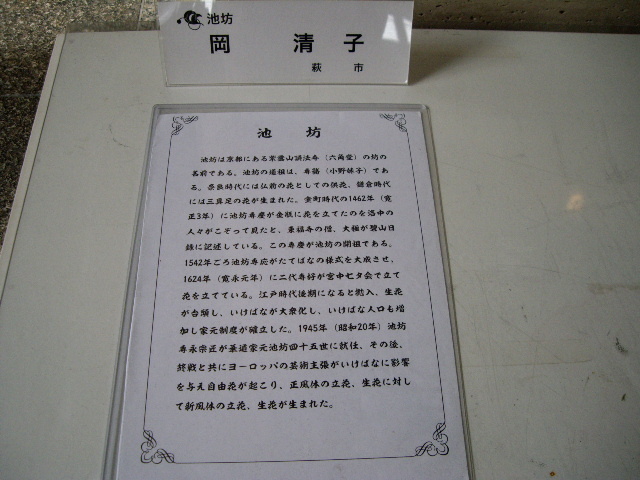 池坊
岡 清子
萩 市
池 坊
池坊は京都にある紫雲山頂法寺（六角堂）の坊の
名前である。池坊の道祖は、専務（小野妹子）であ
る。奈良時代には仏前の花としての供花、鎌倉時代
には三具足の花が生まれた。室町時代の1462年（寛
正3年）に池坊専慶が金瓶に花を立てたのを洛中の
人々がこぞって見たと、東福寺の僧、大極が碧山日
録に記述している。この専慶が池坊の開祖である。
1542年ごろ池坊専応がたてばなの様式を大成させ、
1624年（寛永元年）に二代専好が宮中七夕会で立て
花を立てている。江戸時代後期になると抛入、生花
が台頭し、いけばなが大衆化し、いけばな人口も増
加し家元制度が確立した。1945年（昭和20年）池坊
専永宗匠が華道家元池坊四十五世に就任、その後、
終戦と共にヨーロッパの芸術主張がいけばなに影響
を与え自由花が起こり、正風体の立花、生花に対し
て新風体の立花、生花が生まれた。